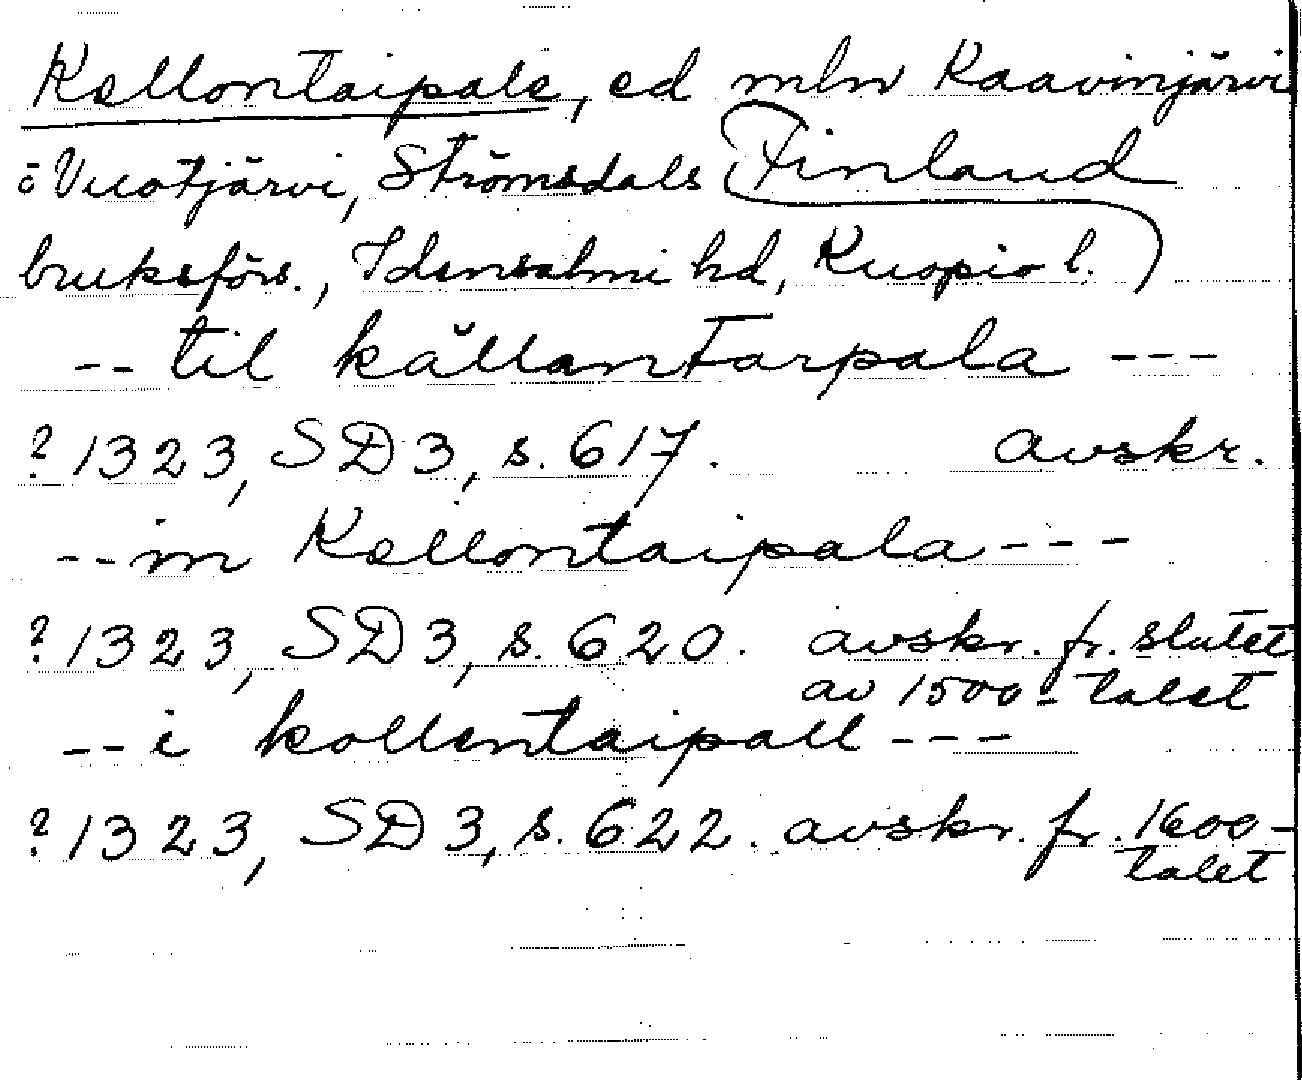 Kellontaipale, ed mln Kaavinjärvi
o Vuotjärvi, Strömsdals Finland
bruksförs., Idensalmi hd, Kuopio l.)
-- til kallantarpala ---
? 1323, SD 3, s. 617. avskr.
-- in Kellontaipala ---
? 1323, SD 3, s. 620. avskr. fr. slutet
av 1500-talet
-- i kollentaipall ---
? 1323, SD 3, s. 622. avskr. fr. 1600-
talet